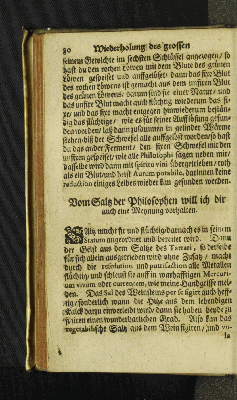 80 Wiederholung des grossen
seinem Gewichte im sechsten Schlüssel angewogen / so
hast du den rothen Löwen mit dem Blute des grünen
Löwen gespeiset und auffgelöset / dann das fixe Blut
des rothen Löwens ist gemacht aus dem unfixen Blute
des grünen Löwens / darum sind sie einer Natur / und
das unfixe Blut macht auch flüchtig wiederum das fi-
xe / und das fixe macht entgegen wiederum bestän-
dig das flüchtige / wie es für seiner Aufflösung gefun-
den worden / laß dann zusammen in gelinder Wärme
stehen biß der Schwefel alle auffgelöset worden / so hast
du das ander Ferment / den fixen Schwefel mit dem
unfixen gespeiset / wie alle Philosophi sagen neben mir /
dasselbe wird dann mit spiritu vini übergetrieben / roth
als ein Blut und heist Aurum potabile, darinnen keine
reduction einiges Leibes wieder kan gefunden werden.
Vom Saltz der Philosophen will ich dir
auch eine Meynung vorhalten.
SAltz macht fix und flüchtig darnach es in seinem
Statum angeordnet und bereitet wird. Dann
der Geist aus dem Saltze des Tartari, so derselbe
für sich allein ausgetrieben wird ohne Zusatz / macht
durch die resolution und putrefaction alle Metallen
flüchtig / und schleust sie auff in wahrhafftigen Mercuri-
um vivum oder currentem, wie meine Handgriffe mel-
den. Das Sal des Weinsteins per se figiret auch heff-
tig / sonderlich wann die Hitze aus dem lebendigen
Kalck darzu einverleibet wird / dann sie haben beyde zu
figiren einen wunderbarlichen Grad. Also kan das
vegetabilische Saltz aus dem Wein figiren / und vo-
la